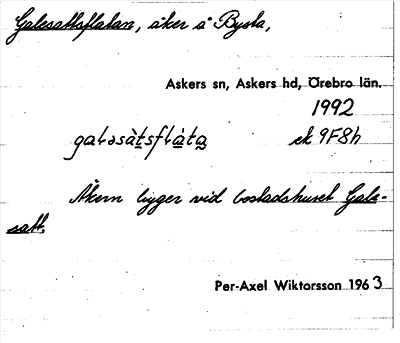 Galesattsflatan, åker å Bysta,
Askers sn, Askers hd, Örebro län.
1992
galəsàtsflàta ek 9F8h
Åkern ligger vid bostadshuset Gale-
satt.
Per-Axel Wiktorsson 1963